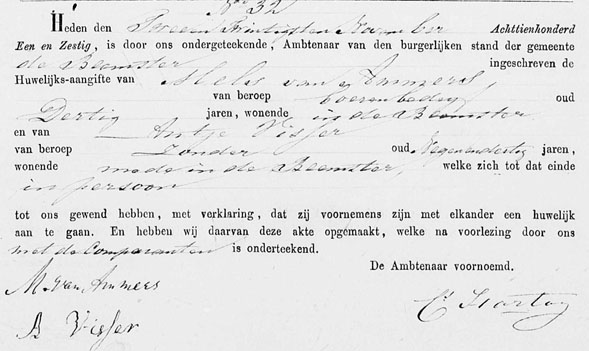 No 32
Heden den Twee en Twintigsten November Achttienhonderd
Een en Zestig, is door ons ondergeteekende, Ambtenaar van den burgerlijken stand der gemeente
de Beemster ingeschreven de
Huwelijks-aangifte van Mels van Ammers,
van beroep boerenbedrijf oud
Dertig jaren, wonende in de Beemster
en van Antje Visser
van beroep Zonder oud Negenendertig jaren,
wonende mede in de Beemster, welke zich tot dat einde
in persoon
tot ons gewend hebben, met verklaring, dat zij voornemens zijn met elkander een huwelijk
aan te gaan. En hebben wij daarvan deze akte opgemaakt, welke na voorlezing door ons
met de Comparanten is onderteekend.
De Ambtenaar voornoemd.
M. van Ammers
A Visser